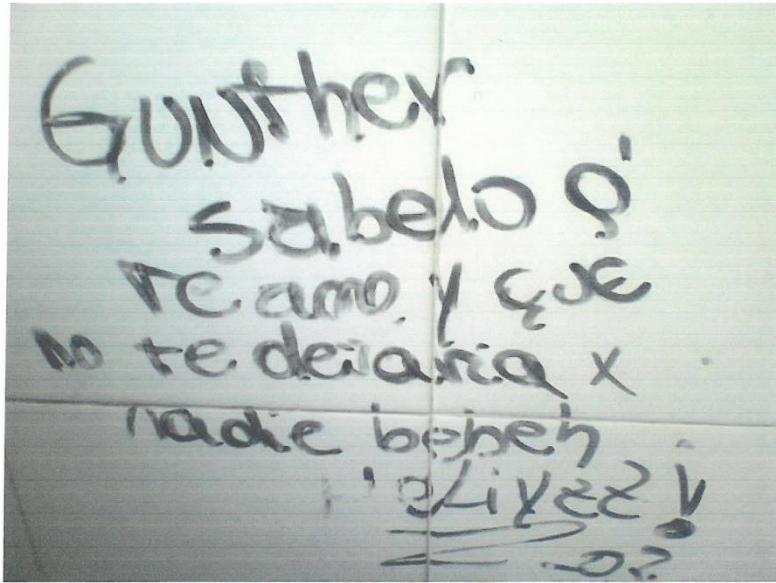 Gunther
sabelo q'
te amo y que
no te dejaria x
nadie bebeh